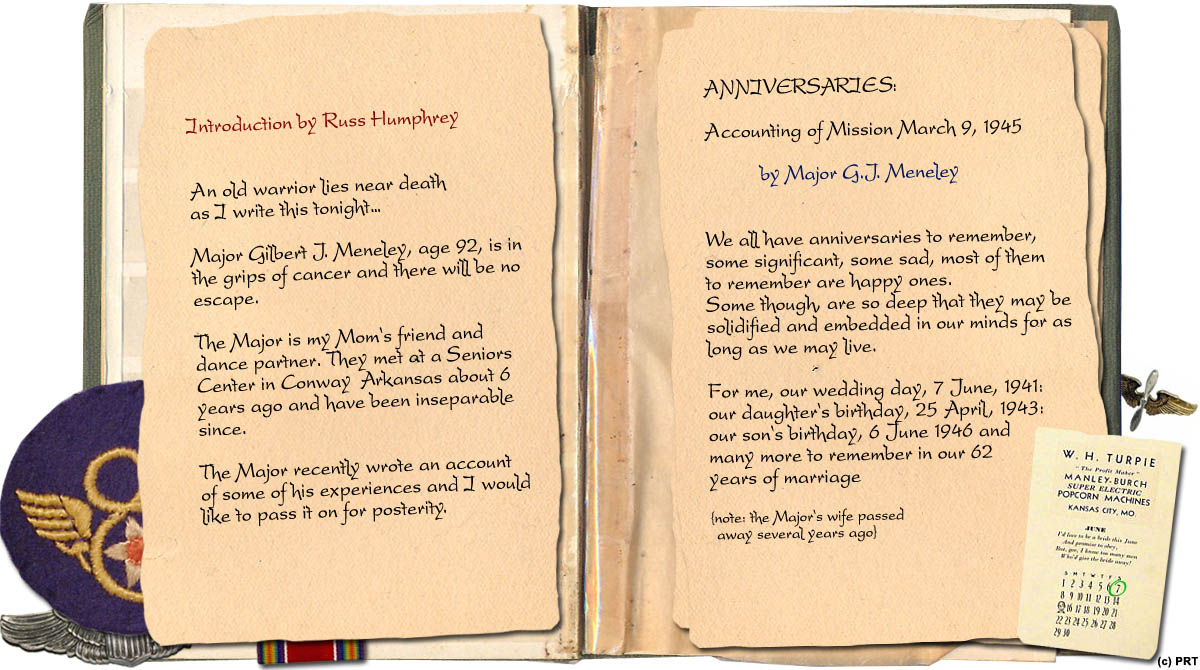 Introduction by Russ Humphrey
An old warrior lies near death
as I write this tonight...
Major Gilbert J. Meneley, age 92, is in
the grips of cancer and there will be no
escape.
The Major is my Mom's friend and
dance partner. They met at a Seniors
Center in Conway Arkansas about 6
years ago and have been inseparable
since.
The Major recently wrote an account
of some of his experiences and I would
like to pass it on for posterity.
ANNIVERSARIES:
Accounting of Mission March 9, 1945
by Major G.J. Meneley
We all have anniversaries to remember,
some significant, some sad, most of them
to remember are happy ones.
Some though, are so deep that they may be
solidified and embedded in our minds for as
long as we may live.
For me, our wedding day, 7 June, 1941:
our daughter's birthday, 25 April, 1943:
our son's birthday, 6 June 1946 and
many more to remember in our 62
years of marriage
{note: the Major's wife passed
away several years ago}
W. H. TURPIE
"The Profit Maker"
MANLEY-BURCH
SUPER ELECTRIC
POPCORN MACHINES
KANSAS CITY, MO.
JUNE
I'd love to be a bride this June
And promise to obey,
But, gee, I know too many men
Who'd give the bride away!
S M T W T F S
1 2 3 4 5 6 7
8 9 10 11 12 13 14
16 17 18 19 20 21
22 23 24 25 26 27 28
29 30
(c) PRT